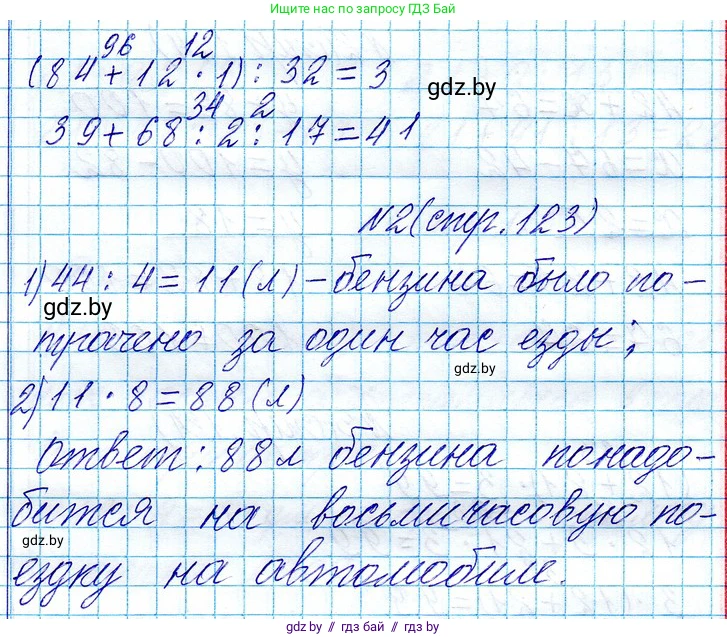 Ищите нас по запросу ГДЗ Бай
96 12
(84 + 12 · 1) : 32 = 3
gdz.by
34 2
39 + 68 : 2 : 17 = 41
№2 (стр. 123)
1) 44 : 4 = 11 (л) – бензина было по-
gdz.by
трачено за один час езды;
gdz.by
2) 11 · 8 = 88 (л)
Ответ: 88 л бензина понадо-
бится на восьмичасовую по-
gdz.by
ездку на автомобиле.
gdz.by // гдз бай // гдз.by